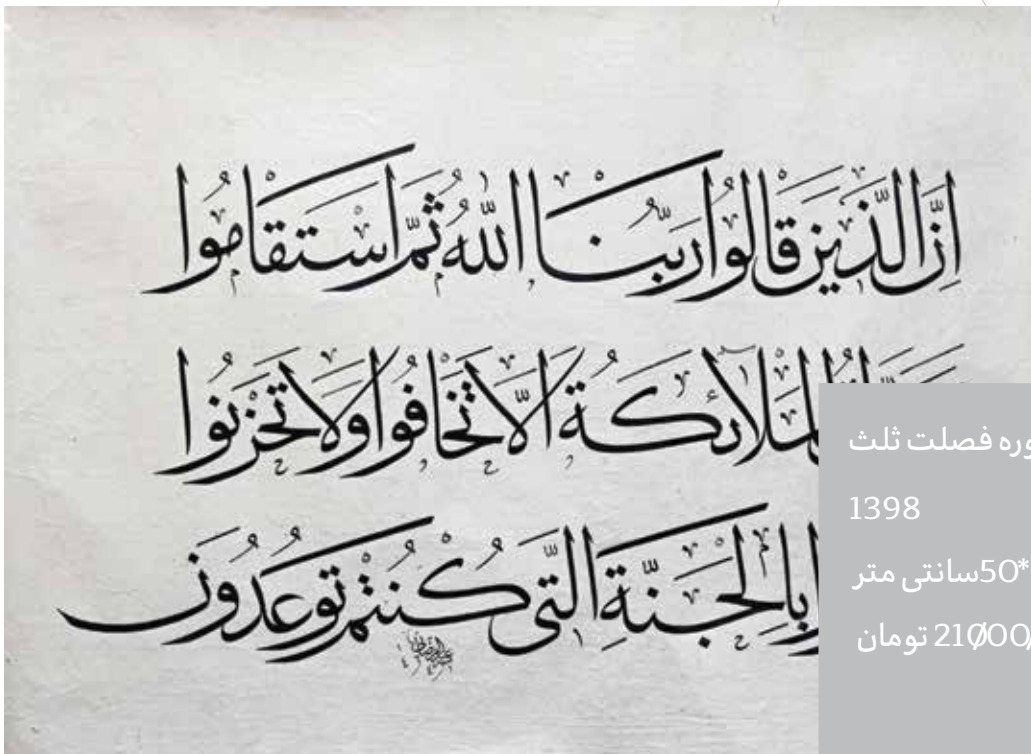 اِنَّ الَّذینَ قالُوا رَبُّنَا اللّٰهُ ثُمَّ اسْتَقامُوا
المَلائِکَةُ اَلّا تَخافُوا وَلا تَحْزَنُوا
بِالْجَنَّةِ الَّتی کُنْتُمْ تُوعَدُونَ
فصلت ثلث
1398
50*سانتی متر
تومان